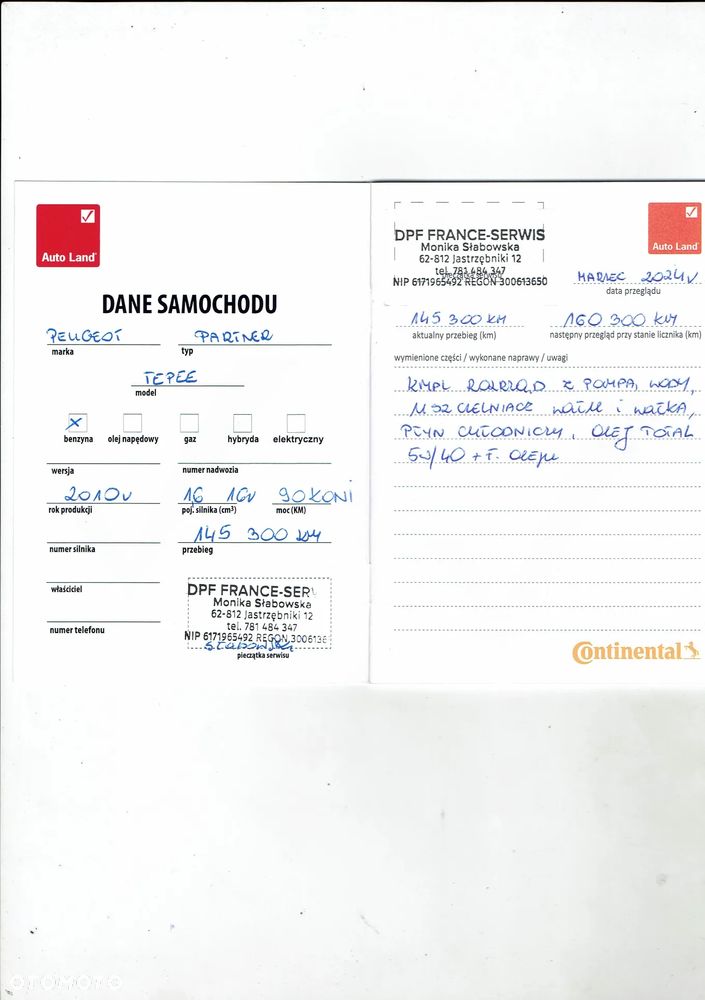 Auto Land
DANE SAMOCHODU
PEUGEOT
marka
PARTNER
typ
TEPEE
model
X
benzyna
olej napędowy
gaz
hybryda
elektryczny
wersja
numer nadwozia
2010r
rok produkcji
1,6 16v
poj. silnika (cm³)
90 KONI
moc (KM)
numer silnika
145 300 KM
przebieg
właściciel
numer telefonu
DPF FRANCE-SERW
Monika Słabowska
62-812 Jastrzębniki 12
tel. 781 484 347
NIP 6171965492 REGON 3006136
pieczątka serwisu
DPF FRANCE-SERWIS
Monika Słabowska
62-812 Jastrzębniki 12
tel. 781 484 347
pieczątka serwisu
NIP 6171965492 REGON 300613650
Auto Land
MARZEC 2024r
data przeglądu
145 300 KM
aktualny przebieg (km)
160 300 KM
następny przegląd przy stanie licznika (km)
wymienione części / wykonane naprawy / uwagi
KMPL ROZRZĄD z POMPĄ WODY,
USZCZELNIACZ WAŁU i WAŁKA,
PŁYN CHŁODNICZY, OLEJ TOTAL
5W/40 + F. OLEJU
Continental
OTOMOTO